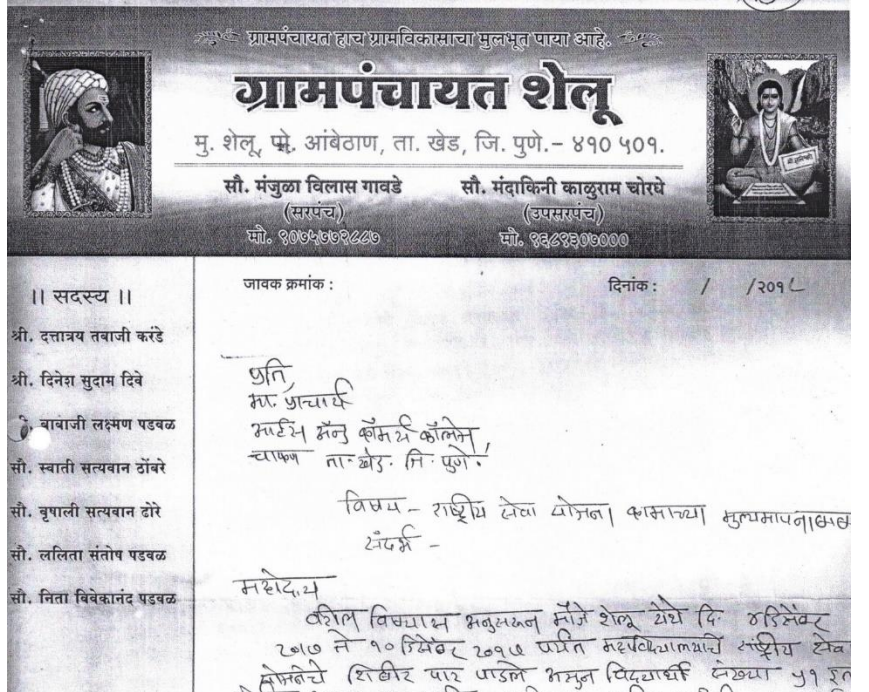 ग्रामपंचायत हाच ग्रामविकासाचा मुलभूत पाया आहे.
ग्रामपंचायत शेलू
मु. शेलू, पो. आंबेठाण, ता. खेड, जि. पुणे.- ४१० ५०१.
सौ. मंजुळा विलास गावडे
(सरपंच)
मो. ९०७५७७२८८७
सौ. मंदाकिनी काळुराम चोरघे
(उपसरपंच)
मो. ९६८९३०७०००
जावक क्रमांक :
दिनांक : / /२०१८
।। सदस्य ।।
श्री. दत्तात्रय तबाजी करंडे
श्री. दिनेश सुदाम दिवे
बाबाजी लक्ष्मण पडवळ
सौ. स्वाती सत्यवान ठोंबरे
सौ. वृषाली सत्यवान ढोरे
सौ. ललिता संतोष पडवळ
सौ. निता विवेकानंद पडवळ
प्रति,
मा. प्राचार्य
आर्टस् अँन्ड कॉमर्स कॉलेज,
चाकण ता. खेड. जि. पुणे.
विषय - राष्ट्रीय सेवा योजना कामाच्या मुल्यमापनाबाबत
संदर्भ -
महोदय
वरील विषयास अनुसरून मौजे शेलू येथे दि. ४ डिसेंबर
२०१७ ते १० डिसेंबर २०१७ पर्यंत महाविद्यालयाचे राष्ट्रीय सेवा
योजनेचे शिबीर पार पाडले असुन विद्यार्थी संख्या ५१